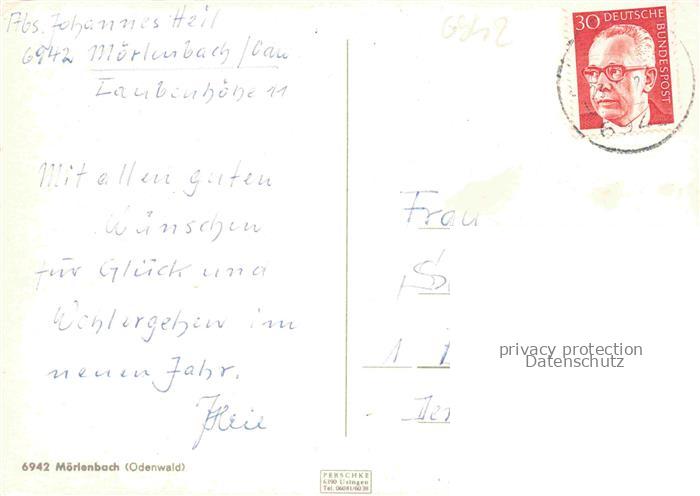 Abs. Johannes Heil
6942 Mörlenbach/Odw
Laubenhöhe 11
6942
30 DEUTSCHE BUNDESPOST
694
Mit allen guten
Wünschen
für Glück und
Wohlergehen im
neuen Jahr.
JHeil
Frau
S
1 1
privacy protection
Datenschutz
6942 Mörlenbach (Odenwald)
PERSCHKE
6390 Usingen
Tel. 06081/6038